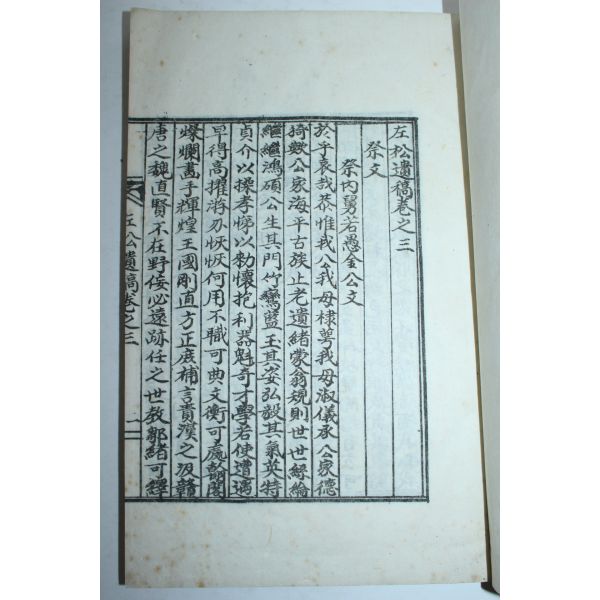 左松遺稿卷之三
祭文
祭內舅若愚金公文
於乎哀哉恭惟我公我母棣萼我母淑儀承公家德
猗歟公家海平古族止老遺緒蒙翁規則世世經綸
繼繼鴻碩公生其門竹鸞藍玉其姿弘毅其氣英特
貞介以操孝悌以勅懷抱利器魁奇才學若使遭遇
早得高擢將刃恢恢何用不職可典文衡可處館閣
燦爛畵手輝煌王國剛直方正庶補言責漢之汲贛
唐之魏直賢不在野佞必遠跡任之世敎鄒緖可繹
左公遺稿卷之三